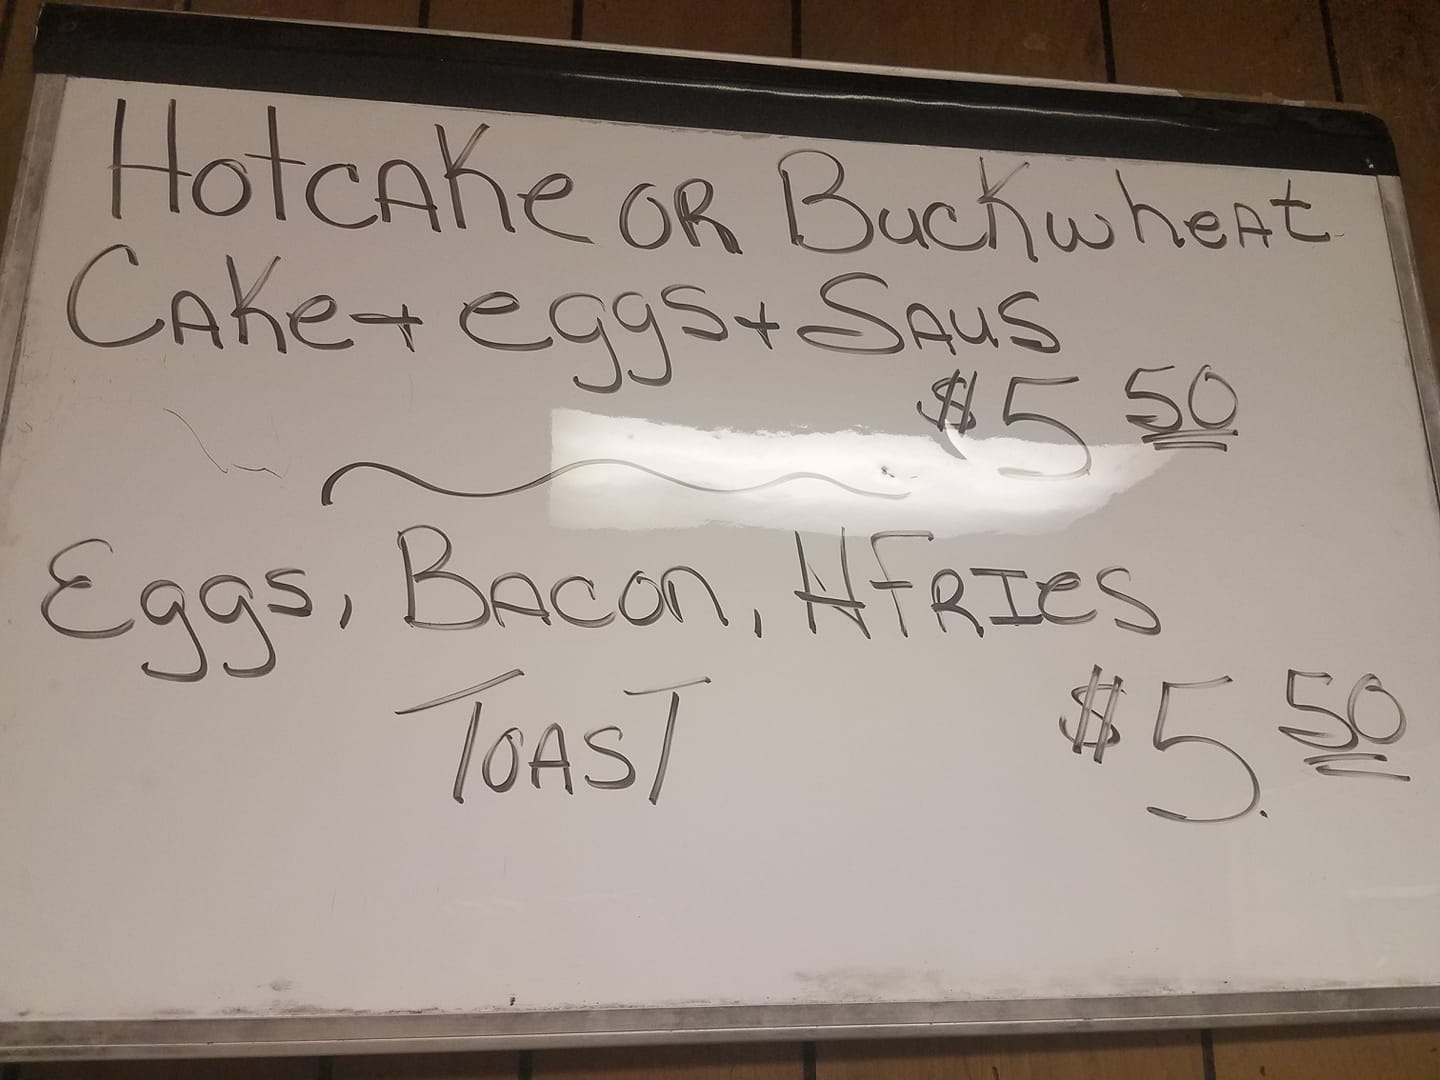 HotcAke OR BuckwheAt
CAke + eggs + SAUS
$5 50
Eggs, BAcon, H FRIes
TOAST
$5.50